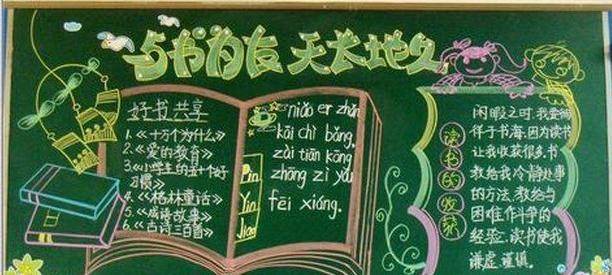 与书为友 天长地久
好书共享
1.《十万个为什么》
2.《爱的教育》
3.《小学生的五十个好
习惯》
4.《格林童话》
5.《成语故事》
6.《古诗三百首》
niǎo er zhǎn
kāi chì bǎng,
zài tiān kōng
zhōng zì yóu
fēi xiáng.
Pīn
Yīn
Jiǎo
读书的收获
闲暇之时,我爱徜
徉于书海,因为读书
让我收获很多。书
教给我冷静处事
的方法,教给与
困难作斗争的
经验.读书使我
谦虚、谨慎。